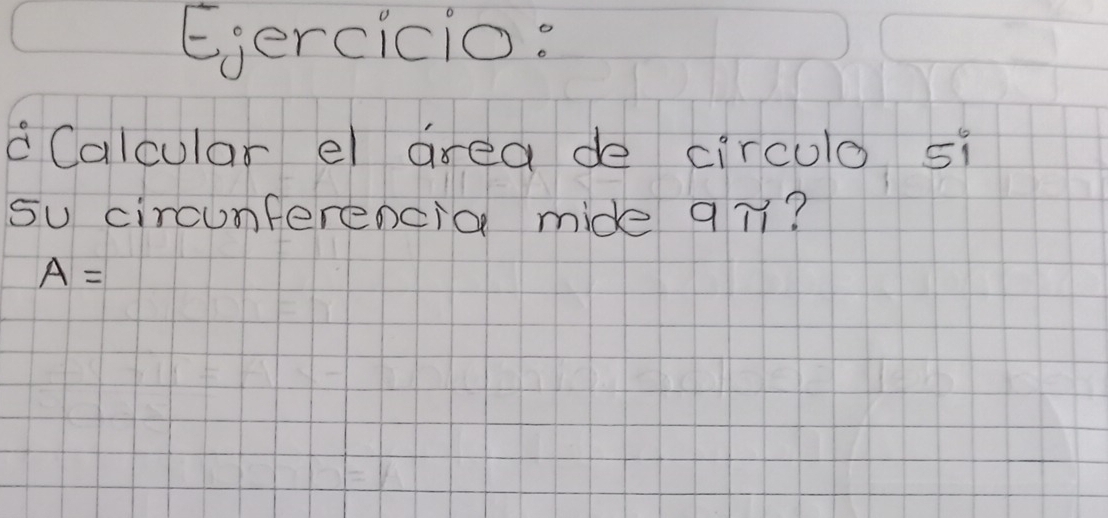 Ejercicio:
¿Calcular el área de circulo, si
su circunferencia mide 9π?
A =